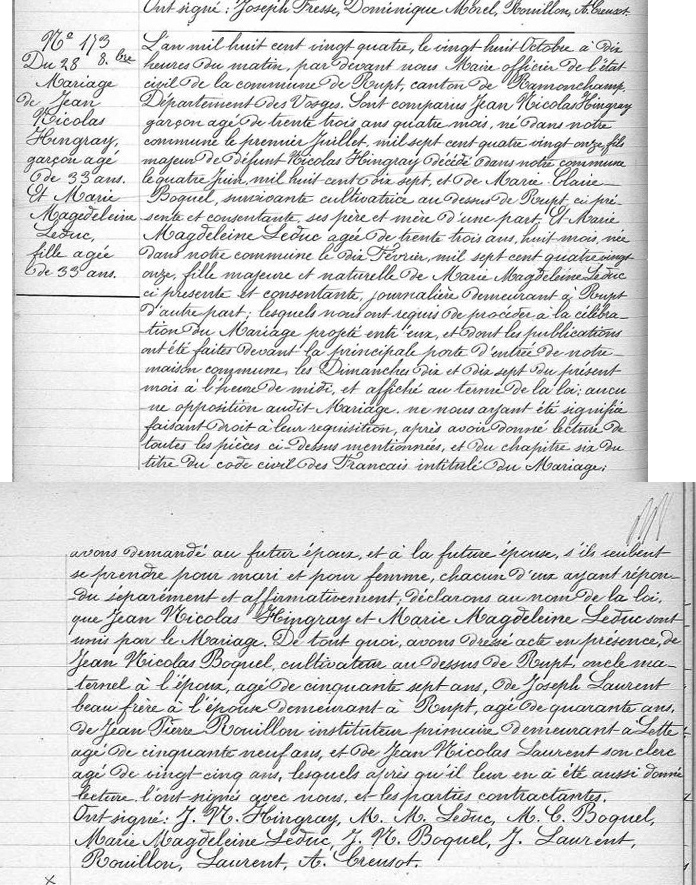 Ont signé : Joseph Fresse, Dominique Morel, Rouillon, A. Creusot.
N° 173
Du 28 8.bre
Mariage
de Jean
Nicolas
Hingray,
garçon agé
de 33 ans.
Et Marie
Magedeleine
Leduc,
fille agée
de 33 ans.
L'an mil huit cent vingt quatre, le vingt huit Octobre à dix
heures du matin, par devant nous Maire officier de l'état
civil de la commune de Rupt, canton de Ramonchamp,
Département des Vosges. Sont comparus Jean Nicolas Hingray
garçon agé de trente trois ans quatre mois, né dans notre
commune le premier Juillet, mil sept cent quatre vingt onze, fils
majeur de défunt Nicolas Hingray décédé dans notre commune
le quatre Juin, mil huit cent dix sept, et de Marie Claire
Boquel, survivante cultivatrice au dessus de Rupt, ci pré-
sente et consentante, ses père et mère d'une part, Et Marie
Magdeleine Leduc agée de trente trois ans, huit mois, née
dans notre commune le dix Février, mil sept cent quatre vingt
onze, fille majeure et naturelle de Marie Magdeleine Leduc
ci presente et consentante, journalière demeurant à Rupt
d'autre part ; lesquels nous ont requis de procéder à la célébra-
tion du Mariage projeté entr'eux, et dont les publications
ont été faites devant la principale porte d'entrée de notre
maison commune, les Dimanches dix et dix sept du présent
mois à l'heure de midi, et affiché au terme de la loi ; aucu
ne opposition audit Mariage. ne nous ayant été signifié
faisant droit à leur requisition, après avoir donné lecture de
toutes les pièces ci-dessus mentionnées, et du chapitre six du
titre du code civil des Francais intitulé du Mariage ;
avons demandé au futur époux, et à la future épouse, s'ils veulent
se prendre pour mari et pour femme, chacun d'eux ayant répon-
du separément et affirmativement, déclarons au nom de la loi,
que Jean Nicolas Hingray et Marie Magdeleine Leduc sont
unis par le Mariage. De tout quoi, avons dressé acte en présence, de
Jean Nicolas Boquel, cultivateur au dessus de Rupt, oncle ma-
ternel à l'époux, agé de cinquante sept ans, de Joseph Laurent
beau frère à l'épouse demeurant à Rupt, agé de quarante ans,
de Jean Pierre Rouillon instituteur primaire demeurant à Lette
agé de cinquante neuf ans, et de Jean Nicolas Laurent son clerc
agé de vingt-cinq ans, lesquels après qu'il leur en à été aussi donné
lecture l'ont signés avec nous, et les parties contractantes.
Ont signé : J. N. Hingray, M. M. Leduc, M. C. Boquel,
Marie Magdeleine Leduc, J. N. Boquel, J. Laurent,
Rouillon, Laurent, A. Creusot.